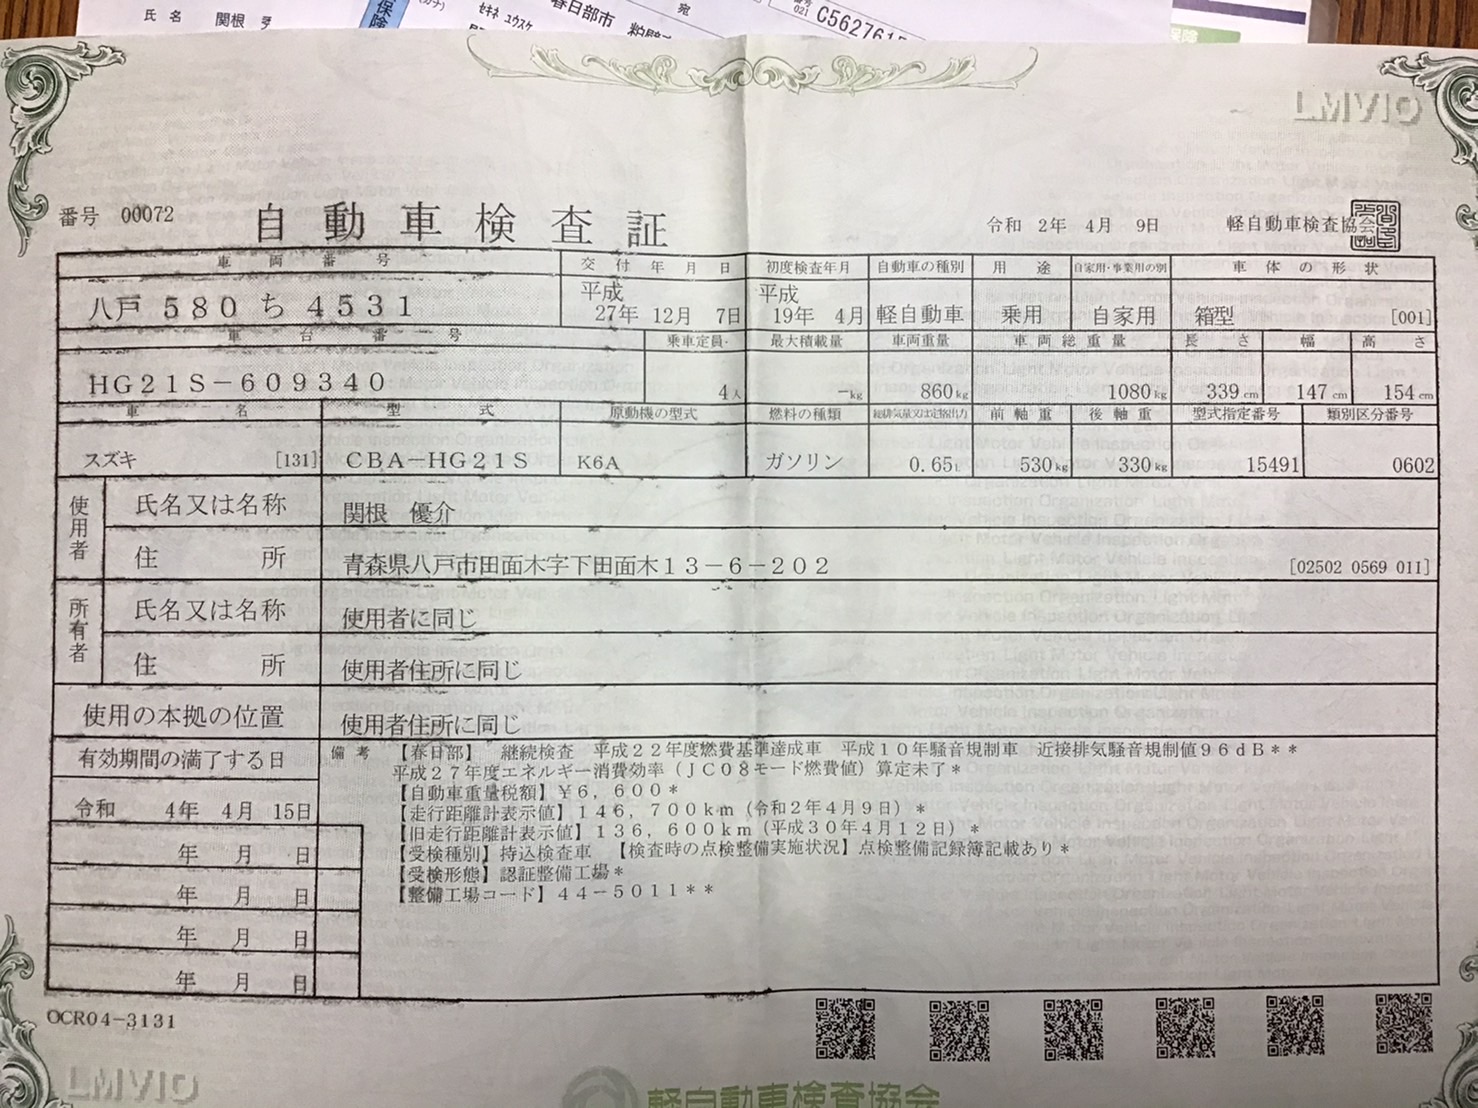 氏 名 関根
セキネ ユウスケ
春日部市 粕壁
宛
番号 021 C5627615
保険
LMVIO
番号 00072
自動車検査証
令和 2年 4月 9日
軽自動車検査協会
車両番号 交付年月日 初度検査年月 自動車の種別 用途 自家用・事業用の別 車体の形状
八戸 580 ち 4531 平成 27年 12月 7日 平成 19年 4月 軽自動車 乗用 自家用 箱型 [001]
車台番号 乗車定員 最大積載量 車両重量 車両総重量 長さ 幅 高さ
HG21S-609340 4人 -kg 860kg 1080kg 339cm 147cm 154cm
車名 型式 原動機の型式 燃料の種類 総排気量又は定格出力 前軸重 後軸重 型式指定番号 類別区分番号
スズキ [131] CBA-HG21S K6A ガソリン 0.65L 530kg 330kg 15491 0602
使用者 氏名又は名称 関根 優介
住所 青森県八戸市田面木字下田面木13-6-202 [02502 0569 011]
所有者 氏名又は名称 使用者に同じ
住所 使用者住所に同じ
使用の本拠の位置 使用者住所に同じ
有効期間の満了する日
令和 4年 4月 15日
年 月 日
年 月 日
年 月 日
年 月 日
備考 【春日部】 継続検査 平成22年度燃費基準達成車 平成10年騒音規制車 近接排気騒音規制値96dB**
平成27年度エネルギー消費効率(JC08モード燃費値)算定未了*
【自動車重量税額】¥6,600*
【走行距離計表示値】146,700km(令和2年4月9日)*
【旧走行距離計表示値】136,600km(平成30年4月12日)*
【受検種別】持込検査車 【検査時の点検整備実施状況】点検整備記録簿記載あり*
【受検形態】認証整備工場*
【整備工場コード】44-5011**
OCR04-3131
LMVIO
軽自動車検査協会